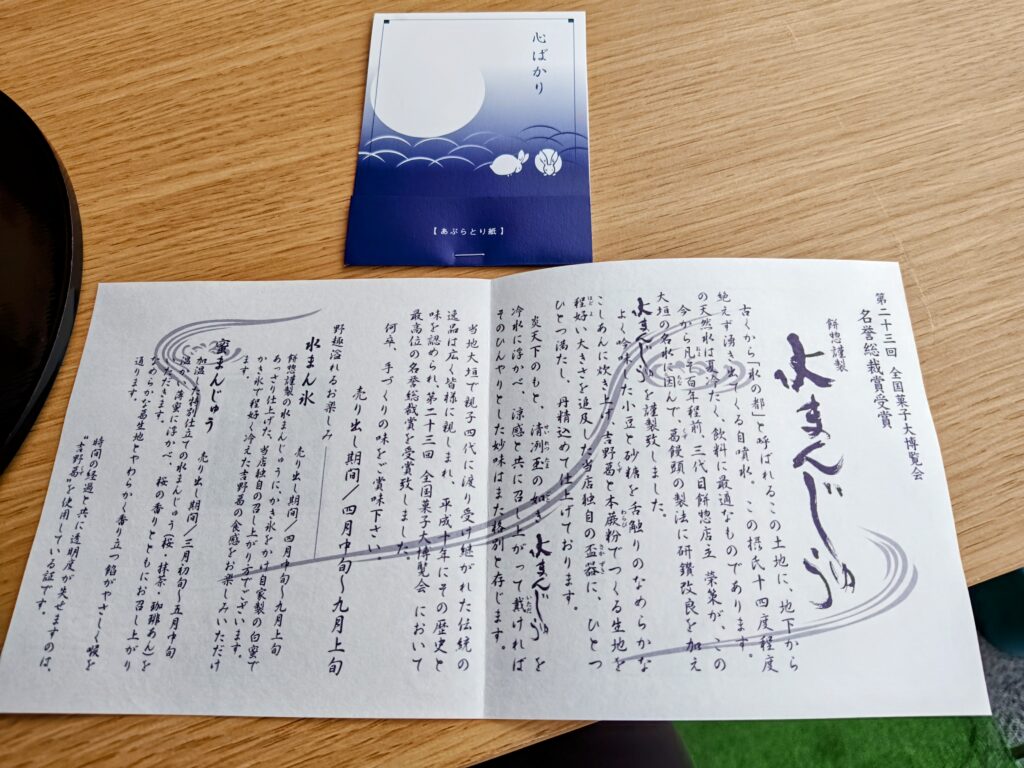 心ばかり
【あぶらとり紙】
第二十三回 全国菓子大博覧会
名誉総裁賞受賞
餅惣謹製
水まんじゅう
古くから「水の都」と呼ばれるこの土地に、地下から
絶えず湧き出てくる自噴水。この摂氏十四度程度
の天然水は夏冷たく、飲料に最適なものであります。
今から凡そ百年程前、三代目餅惣店主 榮策が、この
大垣の名水に因んで、葛饅頭の製法に研鑽改良を加え
水まんじゅうを謹製致しました。
よく吟味した小豆と砂糖を舌触りのなめらかな
こしあんに炊き上げ、吉野葛と本蕨粉でつくる生地を
程好い大きさを追及した当店独自の盃器に、ひとつ
ひとつ満たし、丹精込めて仕上げております。
炎天下のもと、清冽玉の如き 水まんじゅう を
冷水に浮かべ、涼感と共に召し上がって戴ければ
そのひんやりとした妙味はまた格別と存じます。
当地大垣で親子四代に渡り受け継がれた伝統の
逸品は広く皆様に親しまれ、平成十年にその歴史と
味を認められ、第二十三回 全国菓子大博覧会 において
最高位の名誉総裁賞を受賞致しました。
何卒、手づくりの味をご賞味下さい。
売り出し期間/四月中旬〜九月上旬
野趣溢れるお楽しみ
水まん氷
売り出し期間/四月中旬〜九月上旬
餅惣謹製の水まんじゅうにかき氷をかけ自家製の白蜜で
あっさり仕上げた、当店独自の召し上がり方でございます。
かき氷で程好く冷えた吉野葛の食感をお楽しみいただけ
ます。
蜜まんじゅう
売り出し期間/三月初旬〜五月中旬
加温した特別仕立ての水まんじゅう(桜・抹茶・珈琲あん)を
温かい薄蜜に浮かべ、桜の香りとともにお召し上がり
いただきます。
なめらかな葛生地とやわらかく香り立つ餡がやさしく喉を
通ります。
時間の経過と共に透明度が失せますのは、
"吉野葛"を使用している証です。